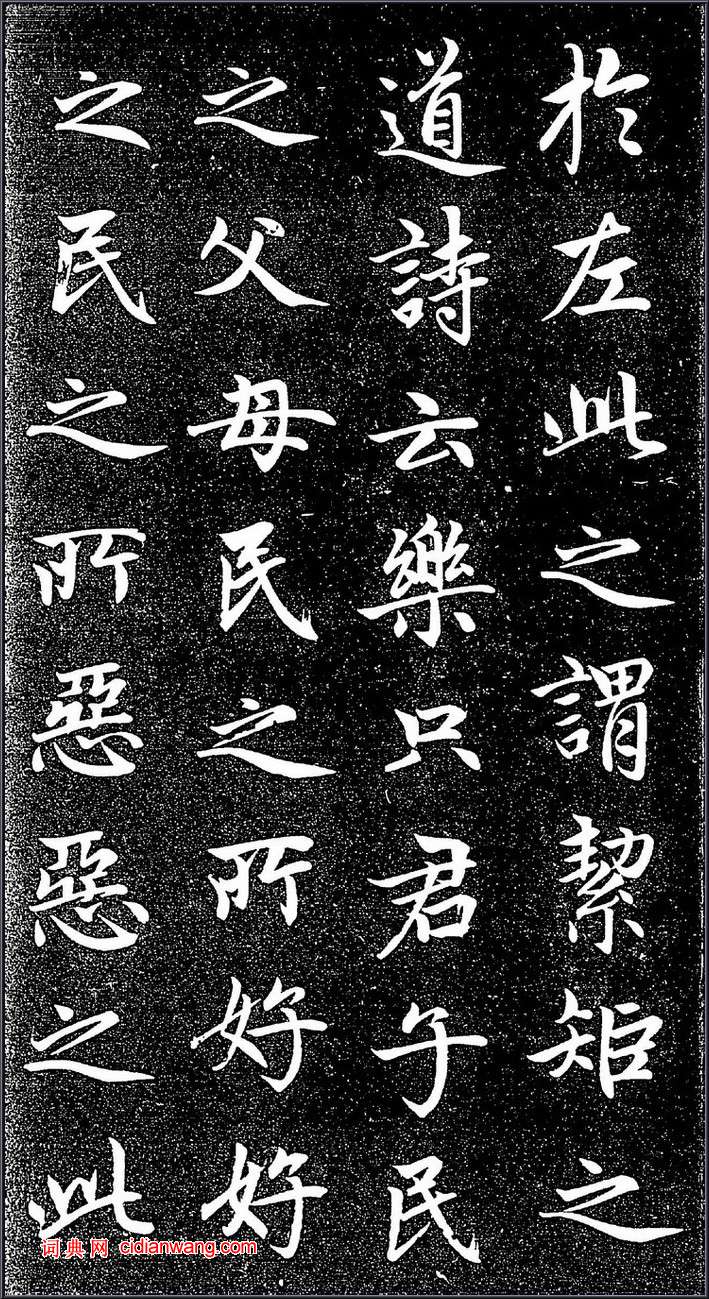 於左此之謂絜矩之
道詩云樂只君子民
之父母民之所好好
之民之所惡惡之此
词典网 cidianwang.com